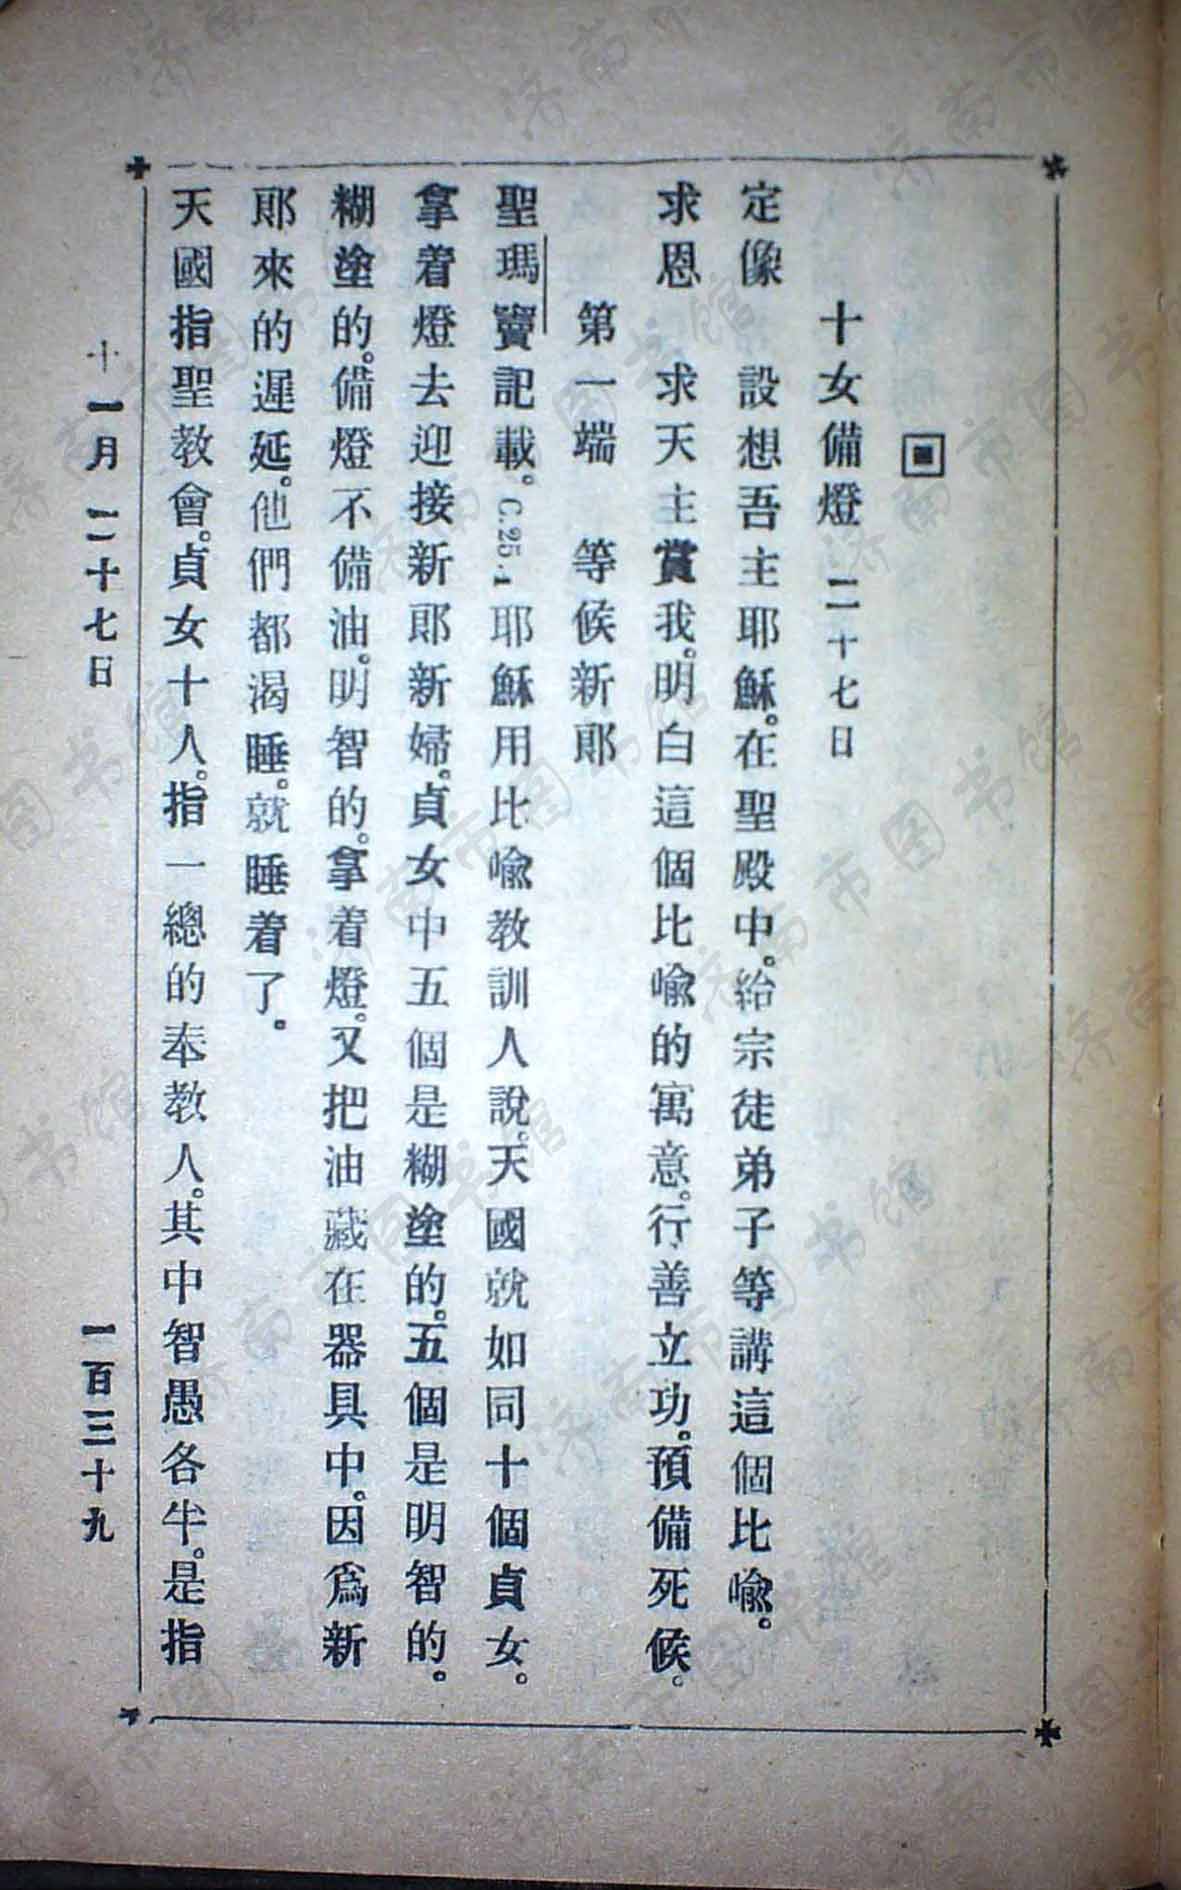 十女備燈 二十七日
定像 設想吾主耶穌。在聖殿中。給宗徒弟子等講這個比喩。
求恩 求天主賞我。明白這個比喩的寓意。行善立功。預備死候。
第一端 等候新郞
聖瑪竇記載。C.25.1耶穌用比喩教訓人說。天國就如同十個貞女。
拿着燈去迎接新郞新婦。貞女中五個是糊塗的。五個是明智的。
糊塗的。備燈不備油。明智的。拿着燈。又把油藏在器具中。因爲新
郞來的遲延。他們都渴睡。就睡着了。
天國指聖教會。貞女十人。指一總的奉教人。其中智愚各半。是指
十一月二十七日 一百三十九
济南市图书馆